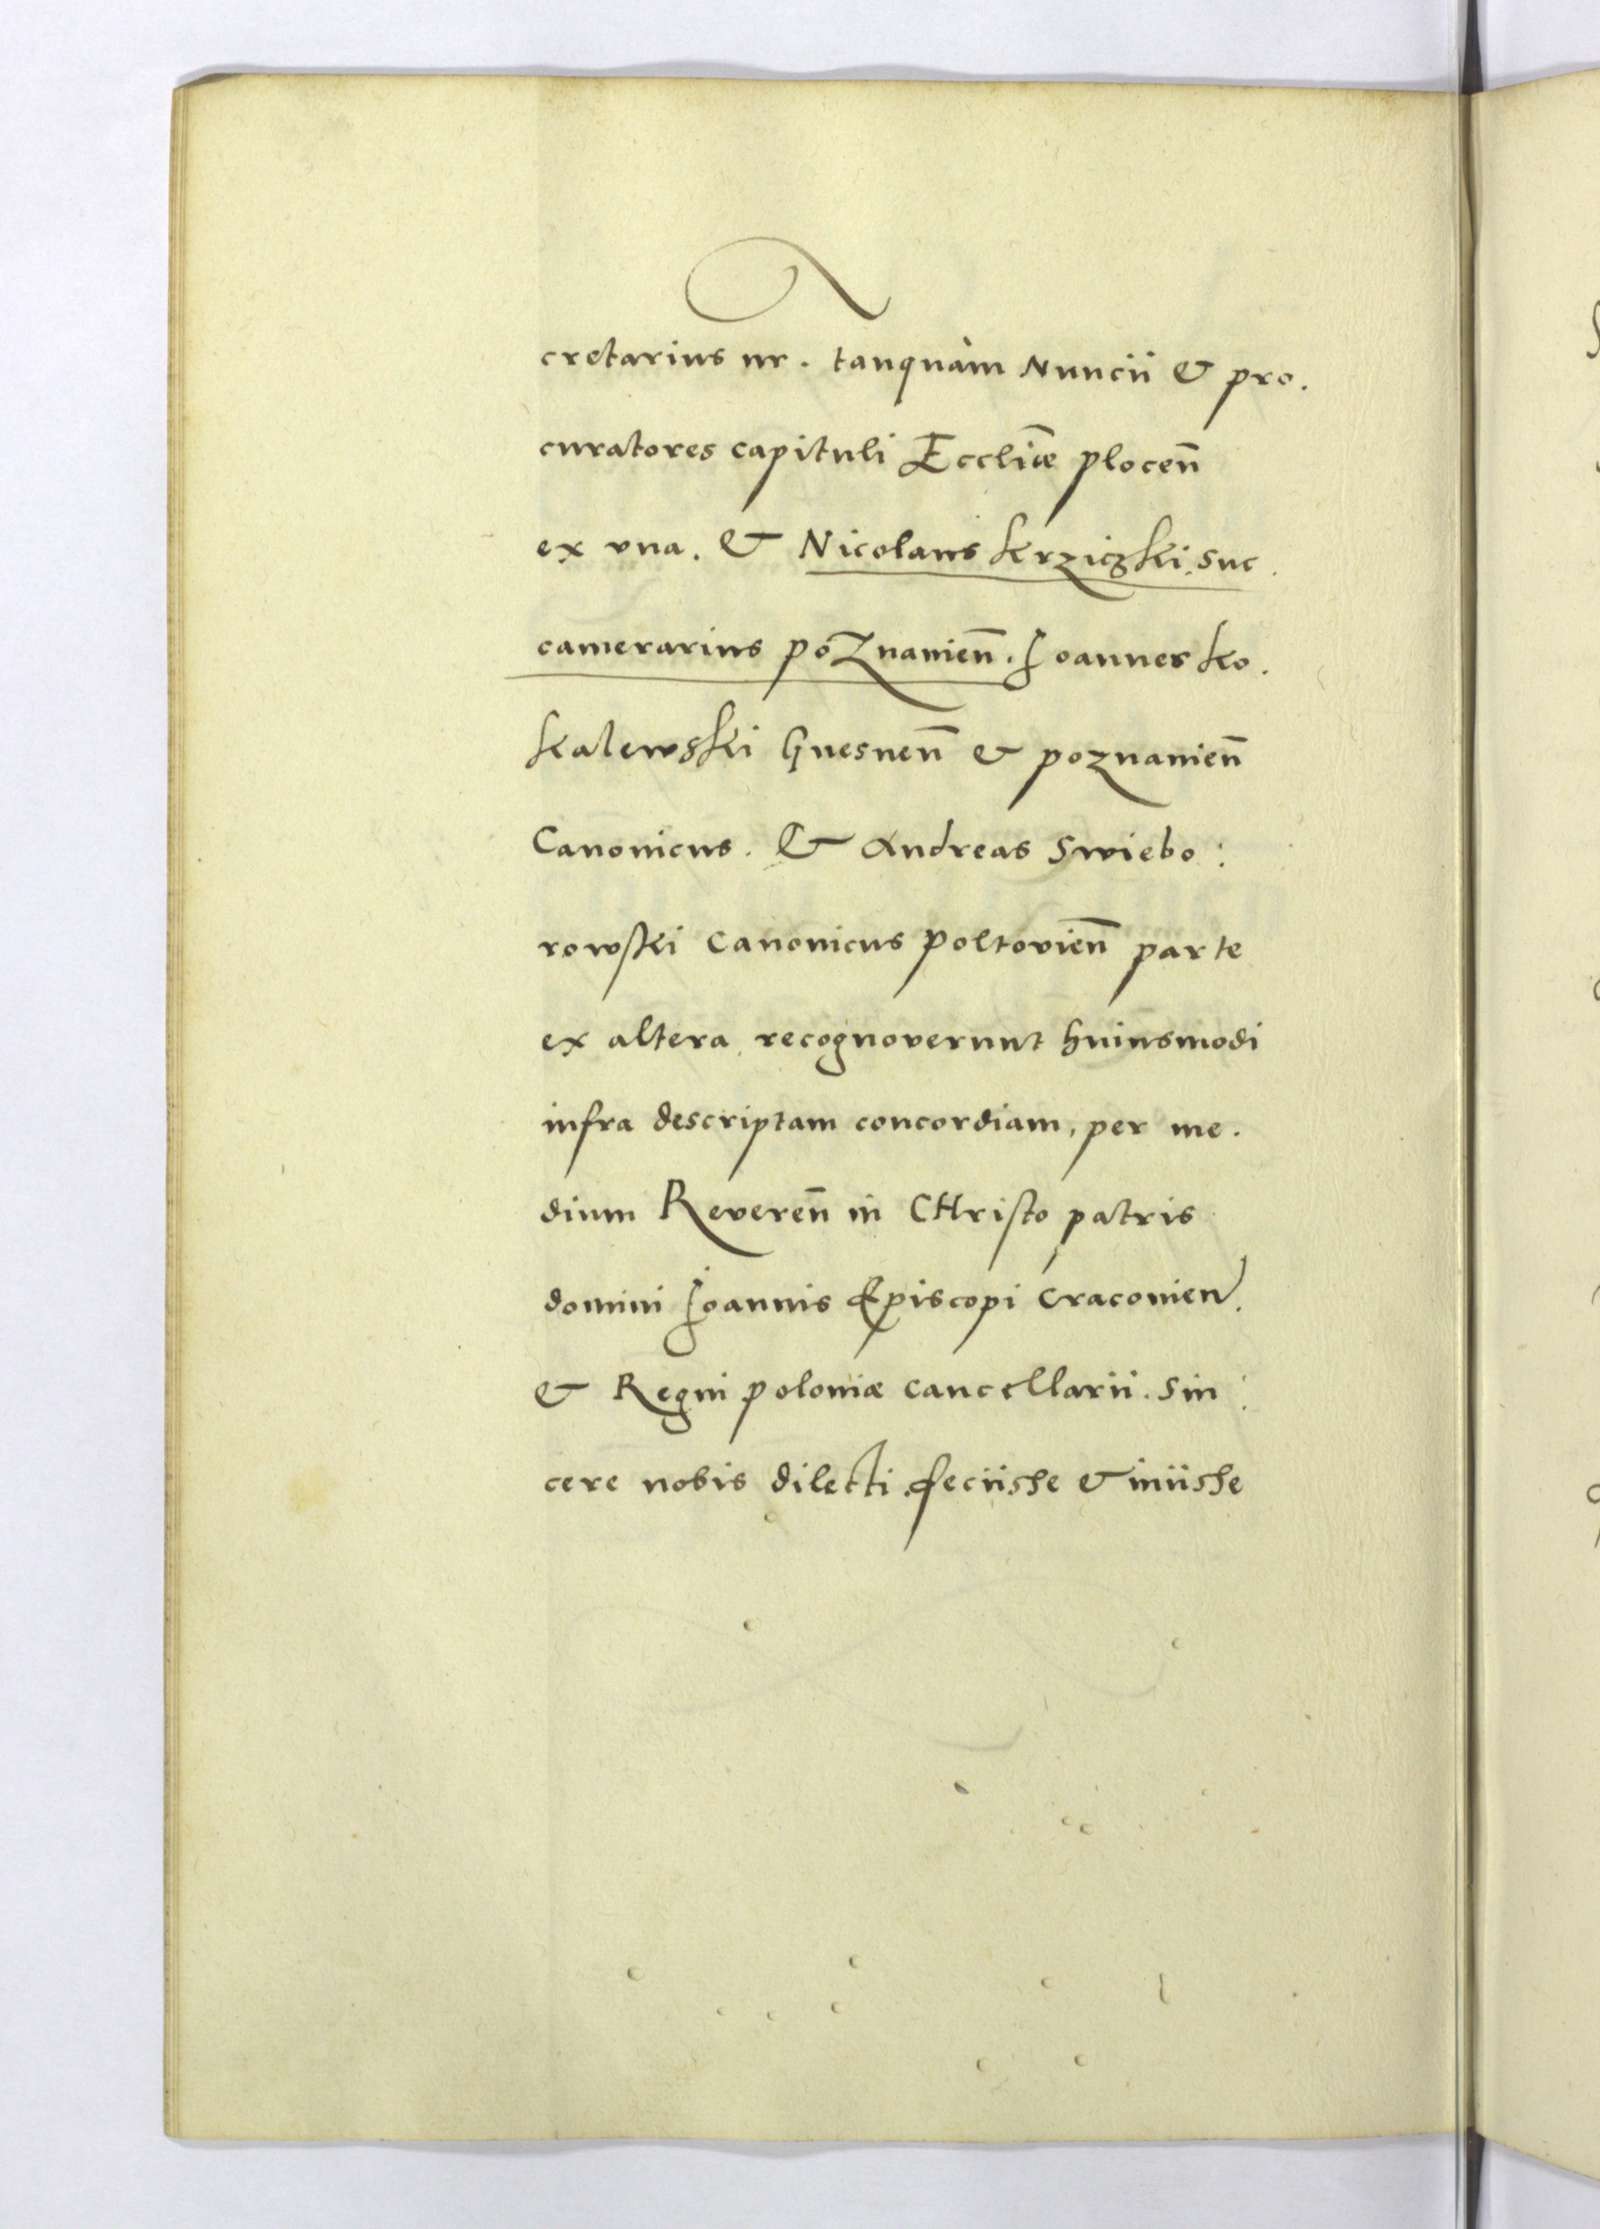 cretarius nr. tanquàm Nuncii & pro.
curatores capituli Eccliæ plocen̄
ex vna. & Nicolaus Krziczki. suc.
camerarius poznanien̄. Ioannes Ko.
Kalewski Gnesnen̄ & poznanien̄
Canonicus. & Andreas Swiebo:
rowski Canonicus poltovien̄ parte
ex altera recognoverunt huiusmodi
infra descriptam concordiam, per me.
dium Reveren̄ in CHristo patris
domini Ioannis Episcopi Cracovien.
& Regni poloniæ cancellarii. sin:
cere nobis dilecti. feciisse & iniisse